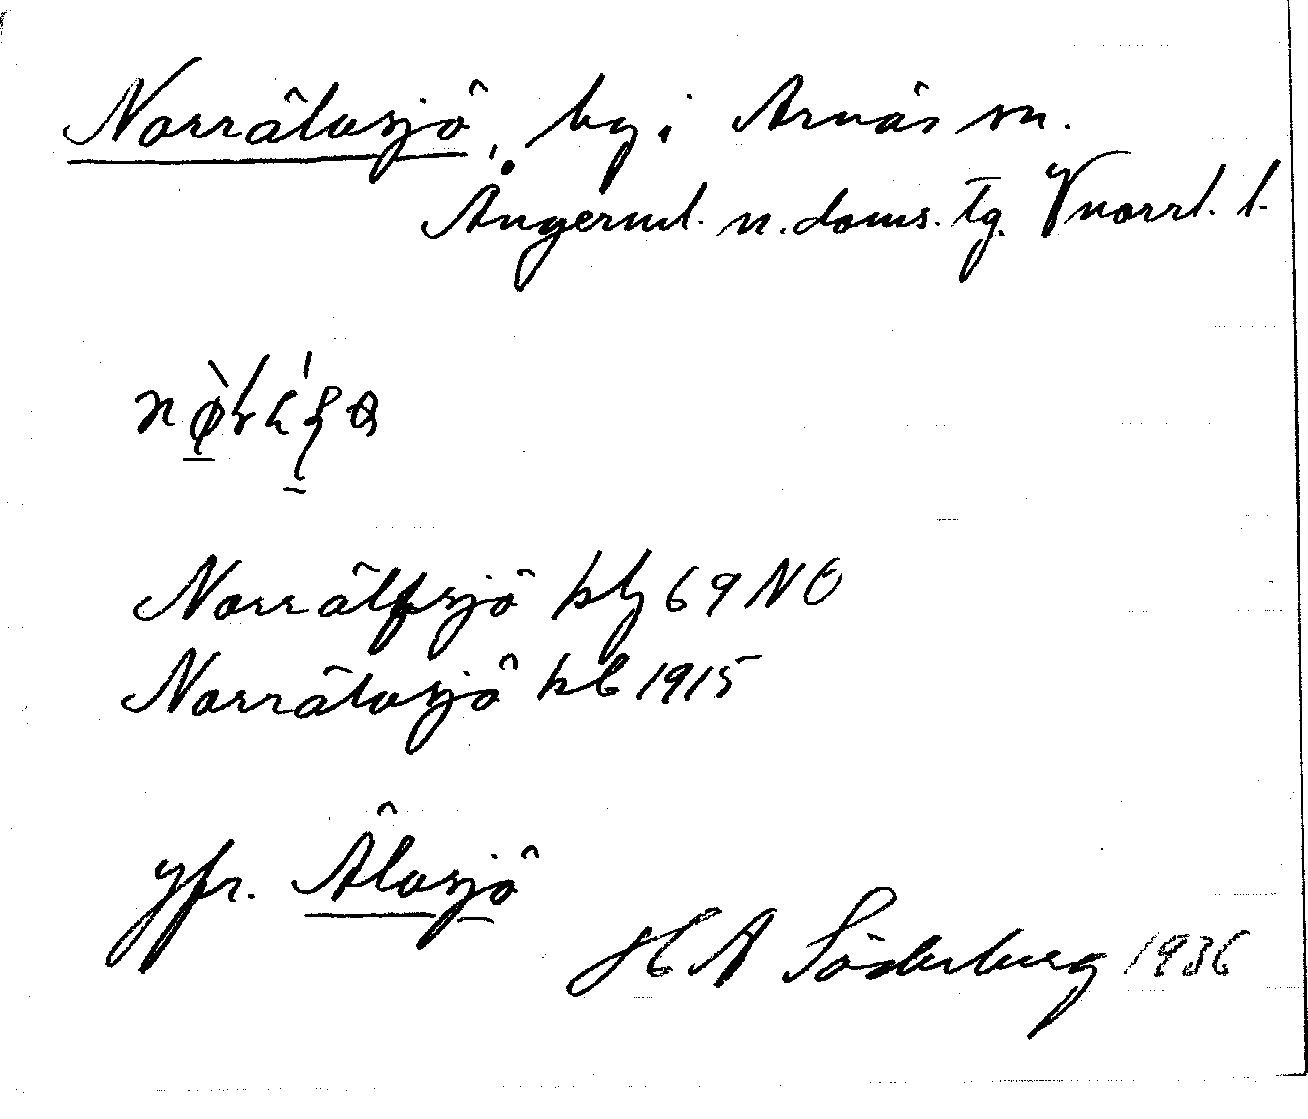 Norrälvsjö, by i Arnäs sn.
Ångerml. n. doms. tg. Vnorrl. l.
Norrälfsjö kbg 69 NO
Norrälvsjö kb 1915
jfr. Älvsjö
H A Söderberg 1936